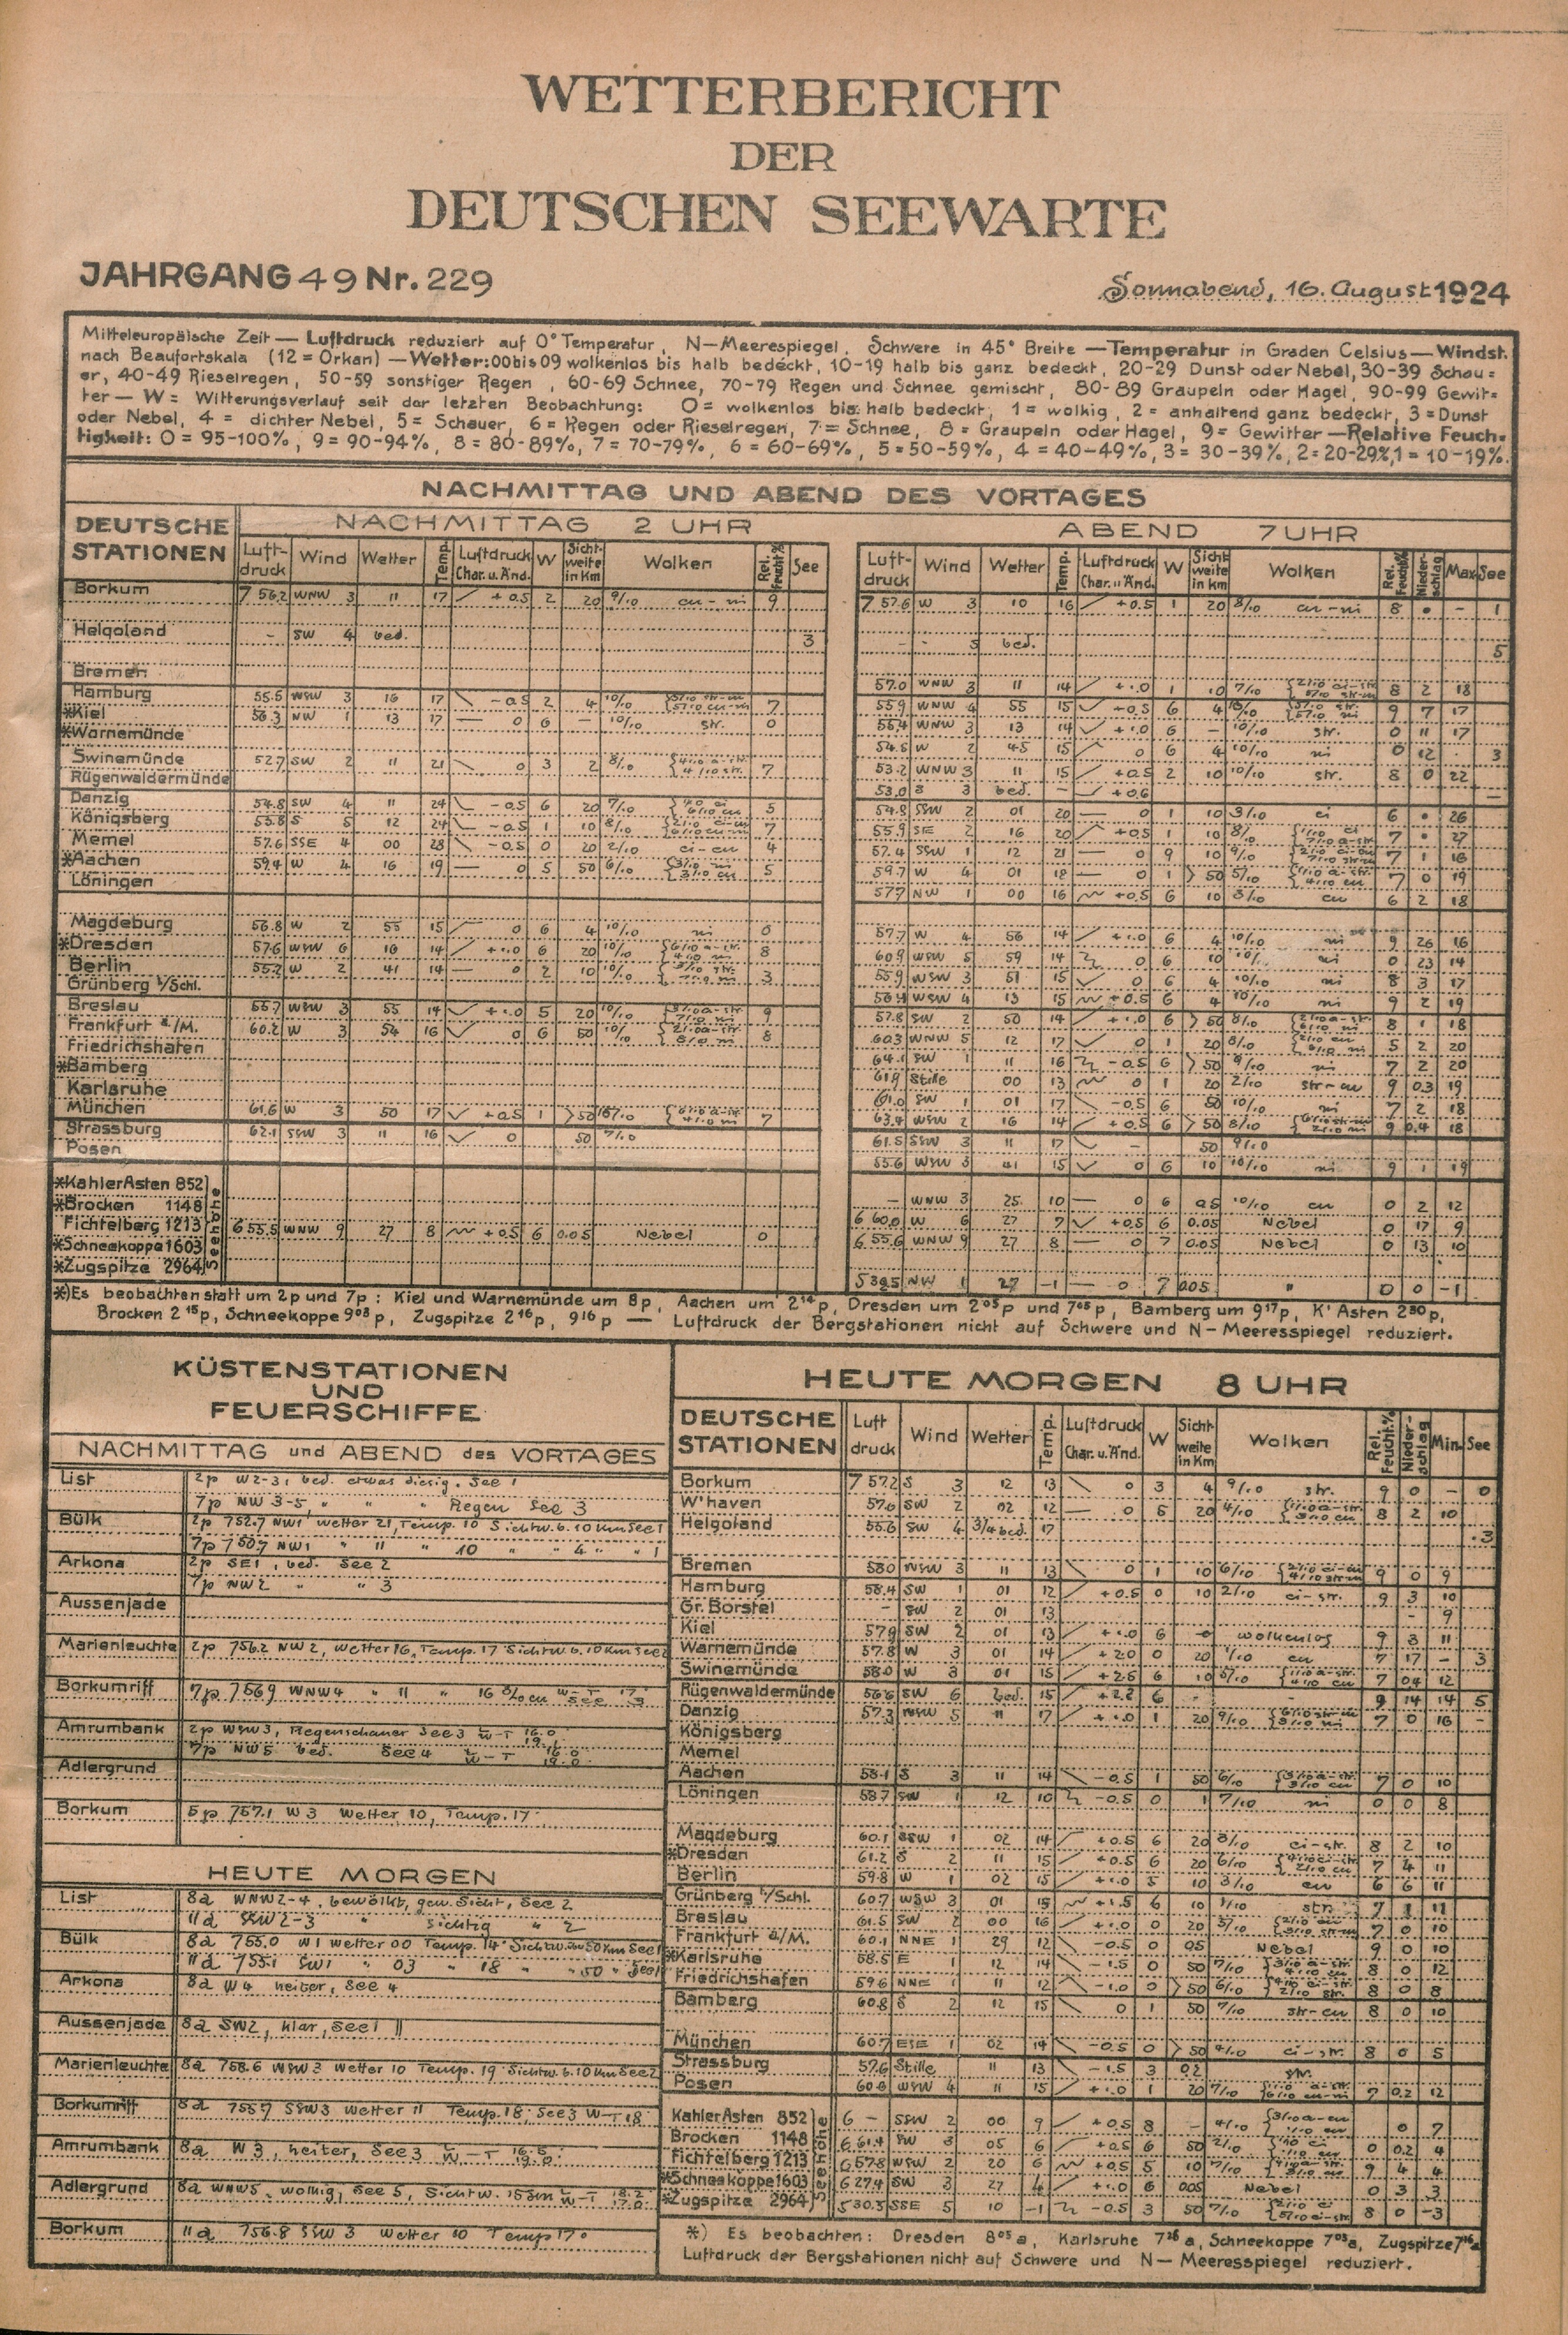 WETTERBERICHT
DER
DEUTSCHEN SEEWARTE
JAHRGANG 49 Nr. 229
Sonnabend, 16. August 1924
Mitteleuropäische Zeit — Luftdruck reduziert auf 0° Temperatur, N—Meerespiegel, Schwere in 45° Breite — Temperatur in Graden Celsius — Windst.
nach Beaufortskala (12 = Orkan) — Wetter: 00 bis 09 wolkenlos bis halb bedeckt, 10-19 halb bis ganz bedeckt, 20-29 Dunst oder Nebel, 30-39 Schau=
er, 40-49 Rieselregen, 50-59 sonstiger Regen, 60-69 Schnee, 70-79 Regen und Schnee gemischt, 80-89 Graupeln oder Hagel, 90-99 Gewit=
ter — W = Witterungsverlauf seit der letzten Beobachtung: 0 = wolkenlos bis halb bedeckt, 1 = wolkig, 2 = anhaltend ganz bedeckt, 3 = Dunst
oder Nebel, 4 = dichter Nebel, 5 = Schauer, 6 = Regen oder Rieselregen, 7 = Schnee, 8 = Graupeln oder Hagel, 9 = Gewitter — Relative Feuch=
tigkeit: 0 = 95-100%, 9 = 90-94%, 8 = 80-89%, 7 = 70-79%, 6 = 60-69%, 5 = 50-59%, 4 = 40-49%, 3 = 30-39%, 2 = 20-29%, 1 = 10-19%.
NACHMITTAG UND ABEND DES VORTAGES
DEUTSCHE STATIONEN
NACHMITTAG 2 UHR
ABEND 7 UHR
Luft-druck Wind Wetter Temp. Luftdruck Char. u. Änd. W Sicht-weite in Km Wolken Rel. Feucht.% See
Luft-druck Wind Wetter Temp. Luftdruck Char. u. Änd. W Sicht weite in Km Wolken Rel. Feucht.% Nieder-schlag Max See
Borkum 756.2 WNW 3 11 17 +0.5 2 20 9/10 cu-ni 9 757.6 W 3 10 16 +0.5 1 20 8/10 cu-ni 8 • – 1
Helgoland – SW 4 bed. 3 – 5 bed. 5
Bremen 57.0 WNW 3 11 14 +1.0 1 10 7/10 8 2 18
Hamburg 55.5 WSW 3 16 17 -0.5 2 4 10/10 7 55.9 WNW 4 55 15 +0.5 6 4 10/10 9 7 17
*Kiel 56.3 NW 1 13 17 — 0 6 – 10/10 str. 0 55.4 WNW 3 13 14 +1.0 6 – 10/10 str. 0 11 17
*Warnemünde 54.5 W 2 45 15 0 6 4 10/10 ni 0 12 3
Swinemünde 52.7 SW 2 11 21 0 3 2 8/10 7 53.2 WNW 3 11 15 +0.5 2 10 10/10 str. 8 0 22
Rügenwaldermünde 53.0 S 3 bed. – +0.6 –
Danzig 54.8 SW 4 11 24 -0.5 6 20 7/10 5 54.8 SSW 2 01 20 — 0 1 10 3/10 ci 6 • 26
Königsberg 55.8 S 5 12 24 -0.5 1 10 8/10 7 55.9 SE 2 16 20 +0.5 1 10 8/10 7 • 27
Memel 57.6 SSE 4 00 28 -0.5 0 20 2/10 ci-cu 4 57.4 SSW 1 12 21 — 0 9 10 9/10 7 1 16
*Aachen 59.4 W 4 16 19 — 0 5 50 6/10 5 59.7 W 4 01 18 — 0 1 >50 5/10 7 0 19
Löningen 57.7 NW 1 00 16 +0.5 6 10 3/10 cu 6 2 18
Magdeburg 56.8 W 2 55 15 0 6 4 10/10 ni 0 57.7 W 4 56 14 +1.0 6 4 10/10 ni 9 26 16
*Dresden 57.6 WSW 6 16 14 +1.0 6 20 10/10 8 60.9 WSW 5 59 14 0 6 10 10/10 ni 0 23 14
Berlin 55.2 W 2 41 14 — 0 2 10 10/10 3 55.9 WSW 3 51 15 0 6 4 10/10 ni 8 3 17
Grünberg i/Schl. WSW 4 13 15 +0.5 6 4 10/10 ni 9 2 19
Breslau 55.7 WSW 3 55 14 +1.0 5 20 10/10 9 57.8 SW 2 50 14 +1.0 6 >50 8/10 8 1 18
Frankfurt a./M. 60.2 W 3 54 16 0 6 50 10/10 8 60.3 WNW 5 12 17 0 1 20 8/10 5 2 20
Friedrichshafen 64.1 SW 1 11 16 -0.5 6 >50 9/10 ni 7 2 20
*Bamberg 61.9 Stille 00 13 0 1 20 2/10 str-cu 9 0.3 19
Karlsruhe 61.0 SW 1 01 17 -0.5 6 50 10/10 ni 7 2 18
München 61.6 W 3 50 17 +0.5 1 >50 10/10 7 63.4 WSW 2 16 14 +0.5 6 >50 8/10 9 0.4 18
Strassburg 62.1 SSW 3 11 16 0 50 7/10 61.5 SSW 3 11 17 – 50 9/10
Posen 55.6 WSW 3 41 15 0 6 10 10/10 ni 9 1 19
Seehöhe
*Kahler Asten 852 – WNW 3 25 10 — 0 6 0.5 10/10 cu 0 2 12
*Brocken 1148 6 60.0 W 6 27 7 +0.5 6 0.05 Nebel 0 17 9
Fichtelberg 1213 6 55.5 WNW 9 27 8 +0.5 6 0.05 Nebel 0 6 55.6 WNW 9 27 8 — 0 7 0.05 Nebel 0 13 10
*Schneekoppe 1603
*Zugspitze 2964 5 39.5 NW 1 27 -1 — 0 7 0.05 " 0 0 -1
*) Es beobachten statt um 2p und 7p: Kiel und Warnemünde um 8p, Aachen um 2¹⁴p, Dresden um 2⁰⁵p und 7⁰⁵p, Bamberg um 9¹⁷p, K' Asten 2³⁰p,
Brocken 2¹⁵p, Schneekoppe 9⁰³p, Zugspitze 2¹⁶p, 9¹⁶p — Luftdruck der Bergstationen nicht auf Schwere und N—Meeresspiegel reduziert.
KÜSTENSTATIONEN
UND
FEUERSCHIFFE
NACHMITTAG und ABEND des VORTAGES
List 2p W2-3, bed. etwas diesig. See 1
7p NW 3-5, " " " Regen See 3
Bülk 2p 752.7 NW1 Wetter 21, Temp. 10 Sichtw. b. 10 Km See 1
7p 750.7 NW1 " 11 " 10 " " 4 " " 1
Arkona 2p SE1, bed. See 2
7p NW2 " " 3
Aussenjade
Marienleuchte 2p 756.2 NW 2, Wetter 16, Temp. 17 Sichtw. b. 10 Km See 2
Borkumriff 7p 756.9 WNW4 " 11 " 16 8/10 cu W-T 17. See 3
Amrumbank 2p WSW3, Regenschauer See 3 W-T 16.0
7p NW5 bed. See 4 W-T 16.0 19.0
Adlergrund
Borkum 5p 757.1 W 3 Wetter 10, Temp. 17.
HEUTE MORGEN
List 8a WNW2-4, bewölkt, gew. Sicht, See 2
11a SSW 2-3 " sichtig " 2
Bülk 8a 755.0 W1 Wetter 00 Temp. 14 Sichtw. üb. 50 Km See 1
11a 755.1 SW1 " 03 " 18 " " 50 " See 1
Arkona 8a W4 heiter, See 4
Aussenjade 8a SW2, klar, See 1
Marienleuchte 8a 758.6 WSW3 Wetter 10 Temp. 19 Sichtw. b. 10 Km See 2
Borkumriff 8a 755.7 SSW3 Wetter 11 Temp. 18, See 3 W-T 18.
Amrumbank 8a W 3, heiter, See 3 W-T 16.5 19.0
Adlergrund 8a WNW5, wolkig, See 5, Sichtw. 15 sm W-T 18.2 17.0
Borkum 11a 756.8 SSW 3 Wetter 10 Temp 17°
HEUTE MORGEN 8 UHR
DEUTSCHE STATIONEN Luft druck Wind Wetter Temp. Luftdruck Char. u. Änd. W Sicht-weite in Km Wolken Rel. Feucht.% Nieder-schlag Min. See
Borkum 757.2 S 3 12 13 0 3 4 9/10 str. 9 0 – 0
W'haven 57.6 SW 2 02 12 — 0 5 20 4/10 8 2 10
Helgoland 55.6 SW 4 3/4 bed. 17 3
Bremen 58.0 WSW 3 11 13 0 1 10 6/10 9 0 9
Hamburg 58.4 SW 1 01 12 +0.5 0 10 2/10 ci-str. 9 3 10
Gr. Borstel – SW 2 01 13 – 9
Kiel 57.9 SW 2 01 13 +1.0 6 wolkenlos 9 3 11
Warnemünde 57.8 W 3 01 14 +2.0 0 20 1/10 cu 7 17 – 3
Swinemünde 58.0 W 3 01 15 +2.5 6 10 5/10 7 0.4 12
Rügenwaldermünde 56.6 SW 6 bed. 15 +2.2 6 - - 9 14 14 5
Danzig 57.3 WSW 5 11 17 +1.0 1 20 9/10 7 0 16 –
Königsberg
Memel
Aachen 58.1 S 3 11 14 -0.5 1 50 6/10 7 0 10
Löningen 58.7 SW 1 12 10 -0.5 0 1 7/10 ni 0 0 8
Magdeburg 60.1 SSW 1 02 14 +0.5 6 20 3/10 ci-str. 8 2 10
*Dresden 61.2 S 2 11 15 +0.5 6 20 6/10 7 4 11
Berlin 59.8 W 1 02 15 +1.0 5 10 3/10 cu 6 6 11
Grünberg i/Schl. 60.7 WSW 3 01 15 +1.5 6 10 1/10 str. 7 1 11
Breslau 61.5 SW 2 00 16 +1.0 0 20 3/10 7 0 10
Frankfurt a/M. 60.1 NNE 1 29 12 -0.5 0 0.5 Nebel 9 0 10
*Karlsruhe 58.5 E 1 12 14 -1.5 0 50 7/10 8 0 12
Friedrichshafen 59.6 NNE 1 11 12 -1.0 0 >50 6/10 8 0 8
Bamberg 60.8 S 2 12 15 0 1 50 7/10 str-cu 8 0 10
München 60.7 ESE 1 02 14 -0.5 0 >50 4/10 ci-str. 8 0 5
Strassburg 57.6 Stille 11 13 -1.5 3 0.2 str.
Posen 60.6 WSW 4 11 15 +1.0 1 20 7/10 7 0.2 12
Seehöhe
Kahler Asten 852 6 – SSW 2 00 9 +0.5 8 – 4/10 0 7
Brocken 1148 6 61.4 SW 3 05 6 +0.5 6 50 2/10 0 0.2 4
Fichtelberg 1213 6 57.8 WSW 2 20 6 +0.5 5 10 7/10 9 4 4
*Schneekoppe 1603 6 27.4 SW 3 27 4 +1.0 6 0.05 Nebel 0 3 3
*Zugspitze 2964 5 30.5 SSE 5 10 -1 -0.5 3 50 7/10 8 0 -3
*) Es beobachten: Dresden 8⁰⁵a, Karlsruhe 7²⁶a, Schneekoppe 7⁰³a, Zugspitze 7¹⁶a
Luftdruck der Bergstationen nicht auf Schwere und N—Meeresspiegel reduziert.